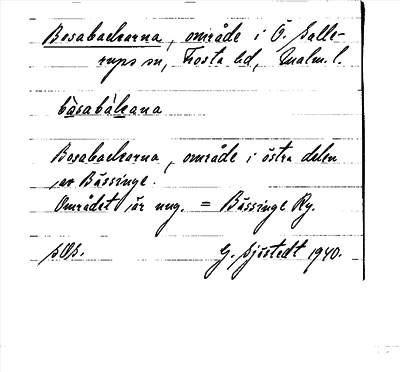 Bosabackarna, område i Ö. Salle-
rups sn, Frosta hd, Malm. l.
bòsabàkana
Bosabackarna, område i östra delen
av Bässinge.
Området är ung. = Bässinge Ry.
sOs. G. Sjöstedt 1940.